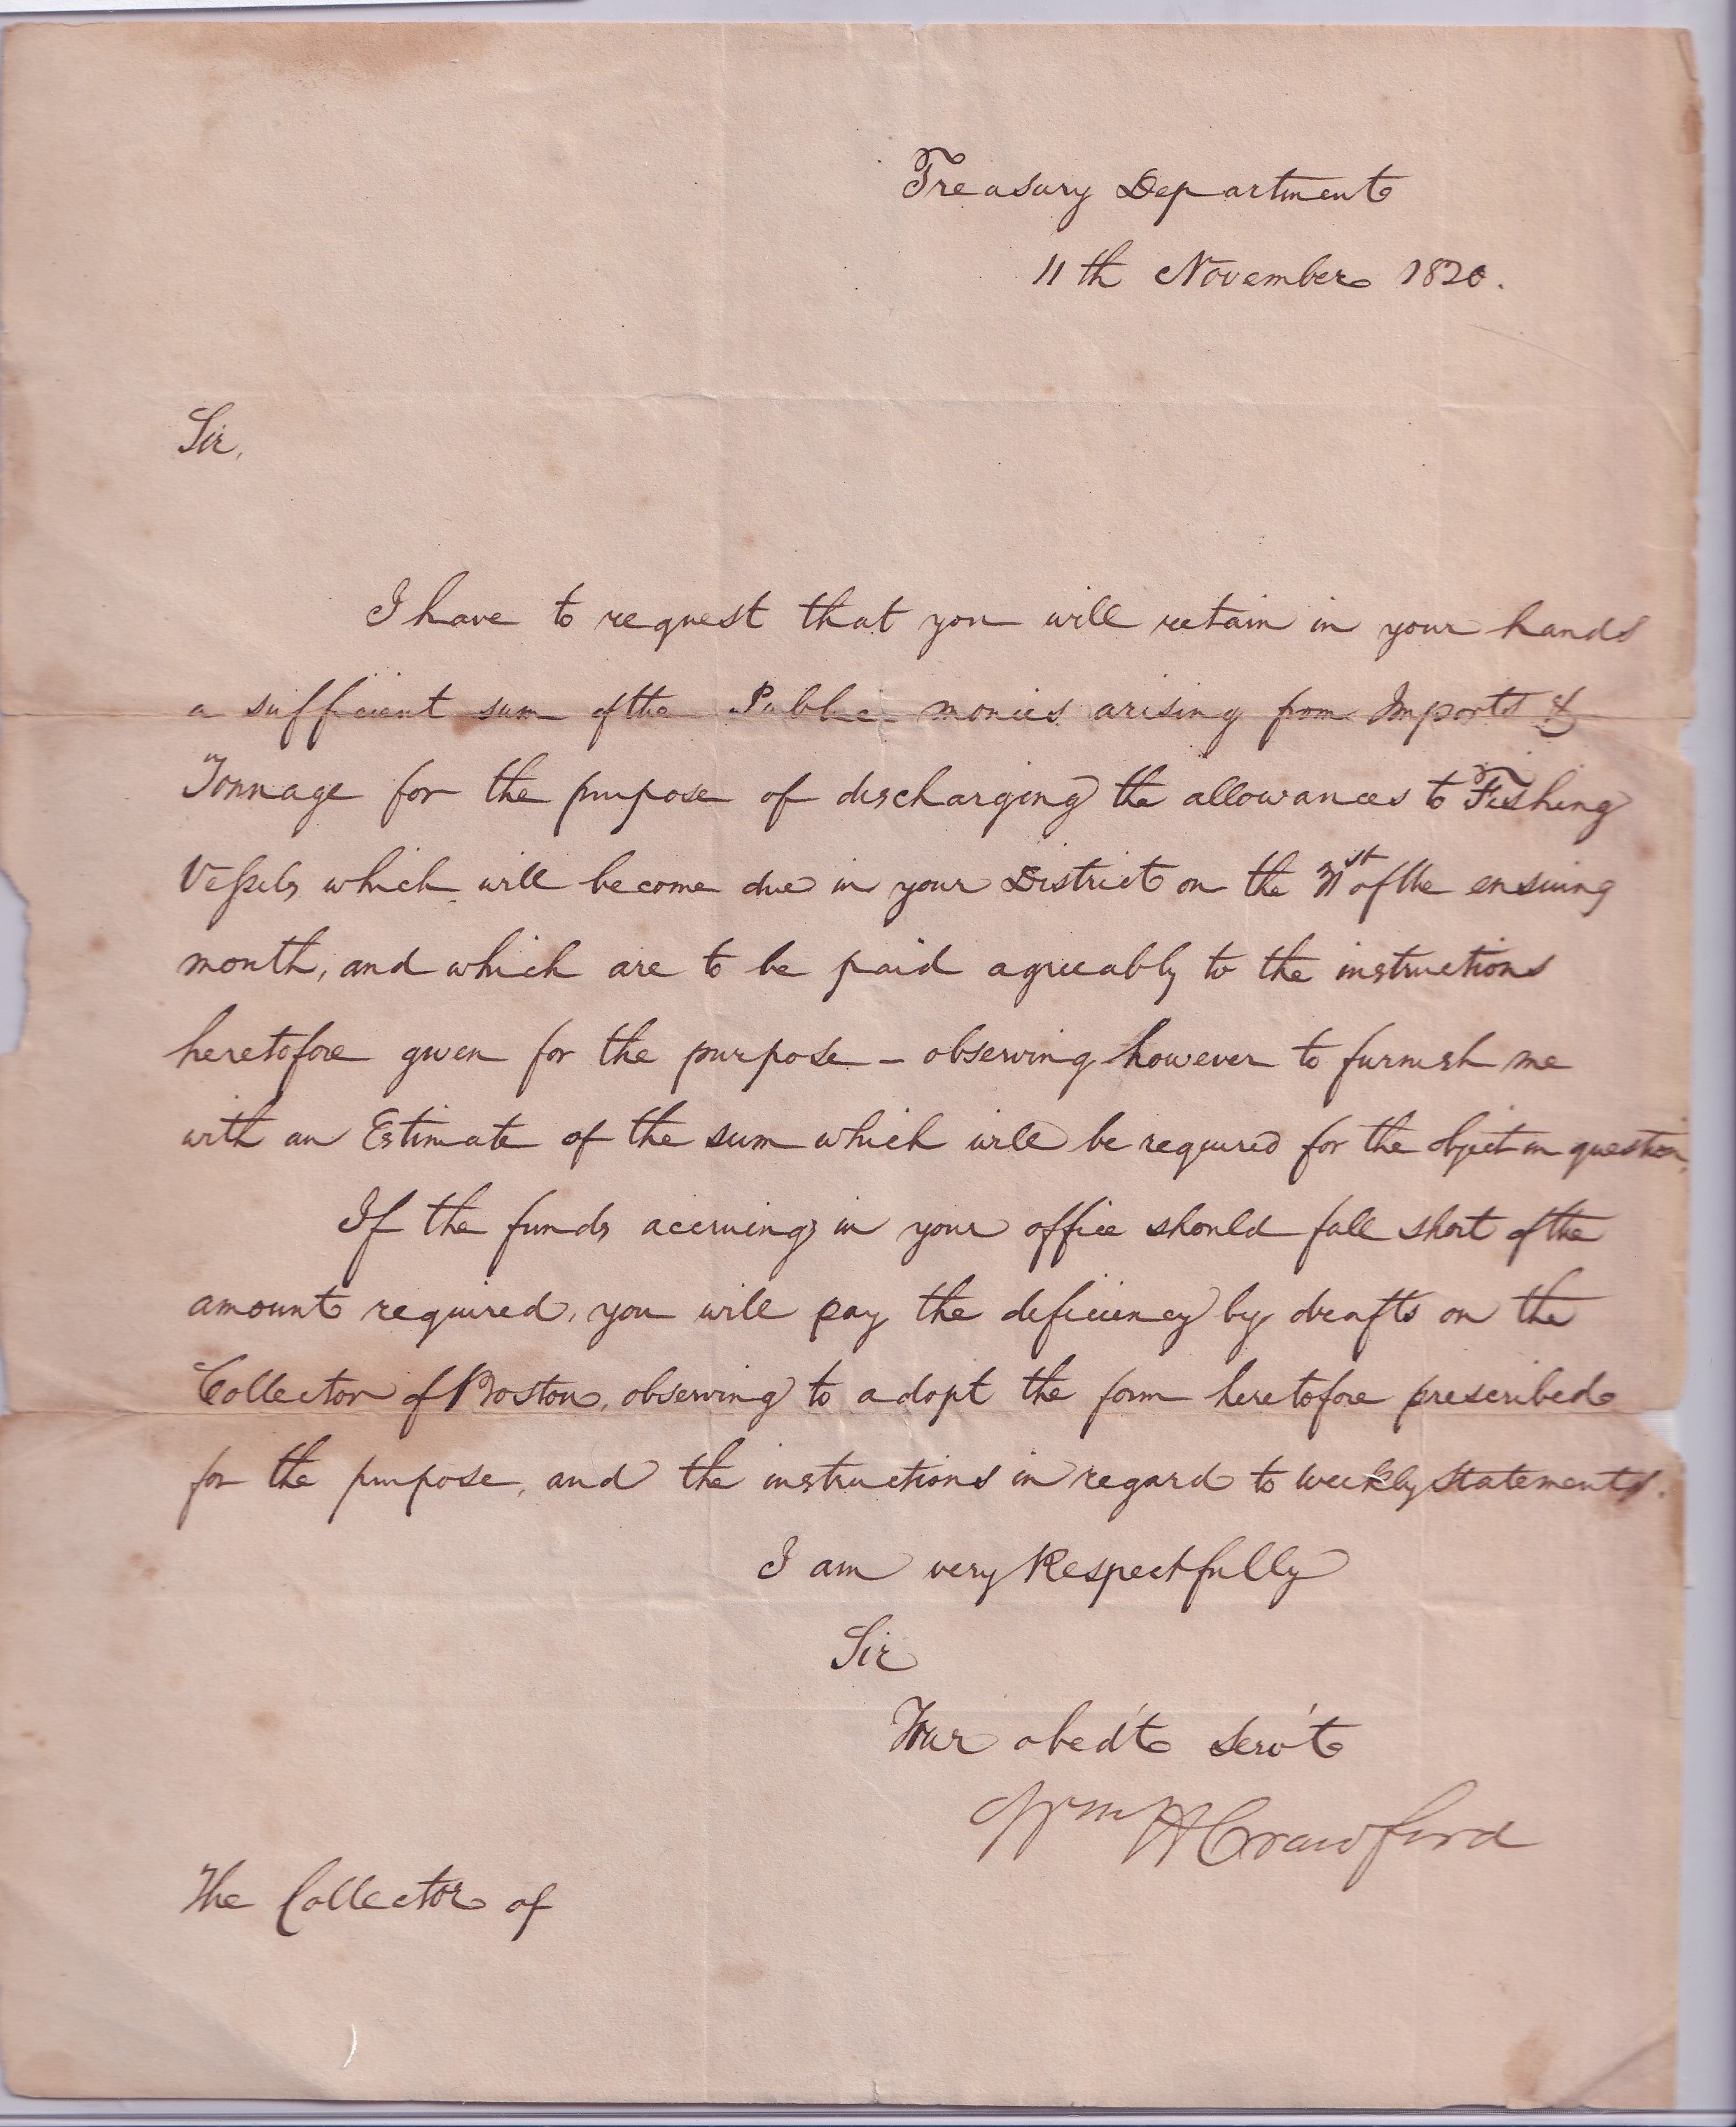 Treasury Department
11th November 1820.
Sir,
I have to request that you will retain in your hands
a sufficient sum of the Public monies arising from Imports &
Tonnage for the purpose of discharging the allowances to Fishing
Vessels which will become due in your District on the 31st of the ensuing
month, and which are to be paid agreeably to the instructions
heretofore given for the purpose – observing however to furnish me
with an Estimate of the sum which will be required for the object in question.
If the funds accruing in your office should fall short of the
amount required, you will pay the deficiency by drafts on the
Collector of Boston, observing to adopt the form heretofore prescribed
for the purpose, and the instructions in regard to weekly statements.
I am very Respectfully
Sir
Your obed't serv't
Wm H Crawford
The Collector of